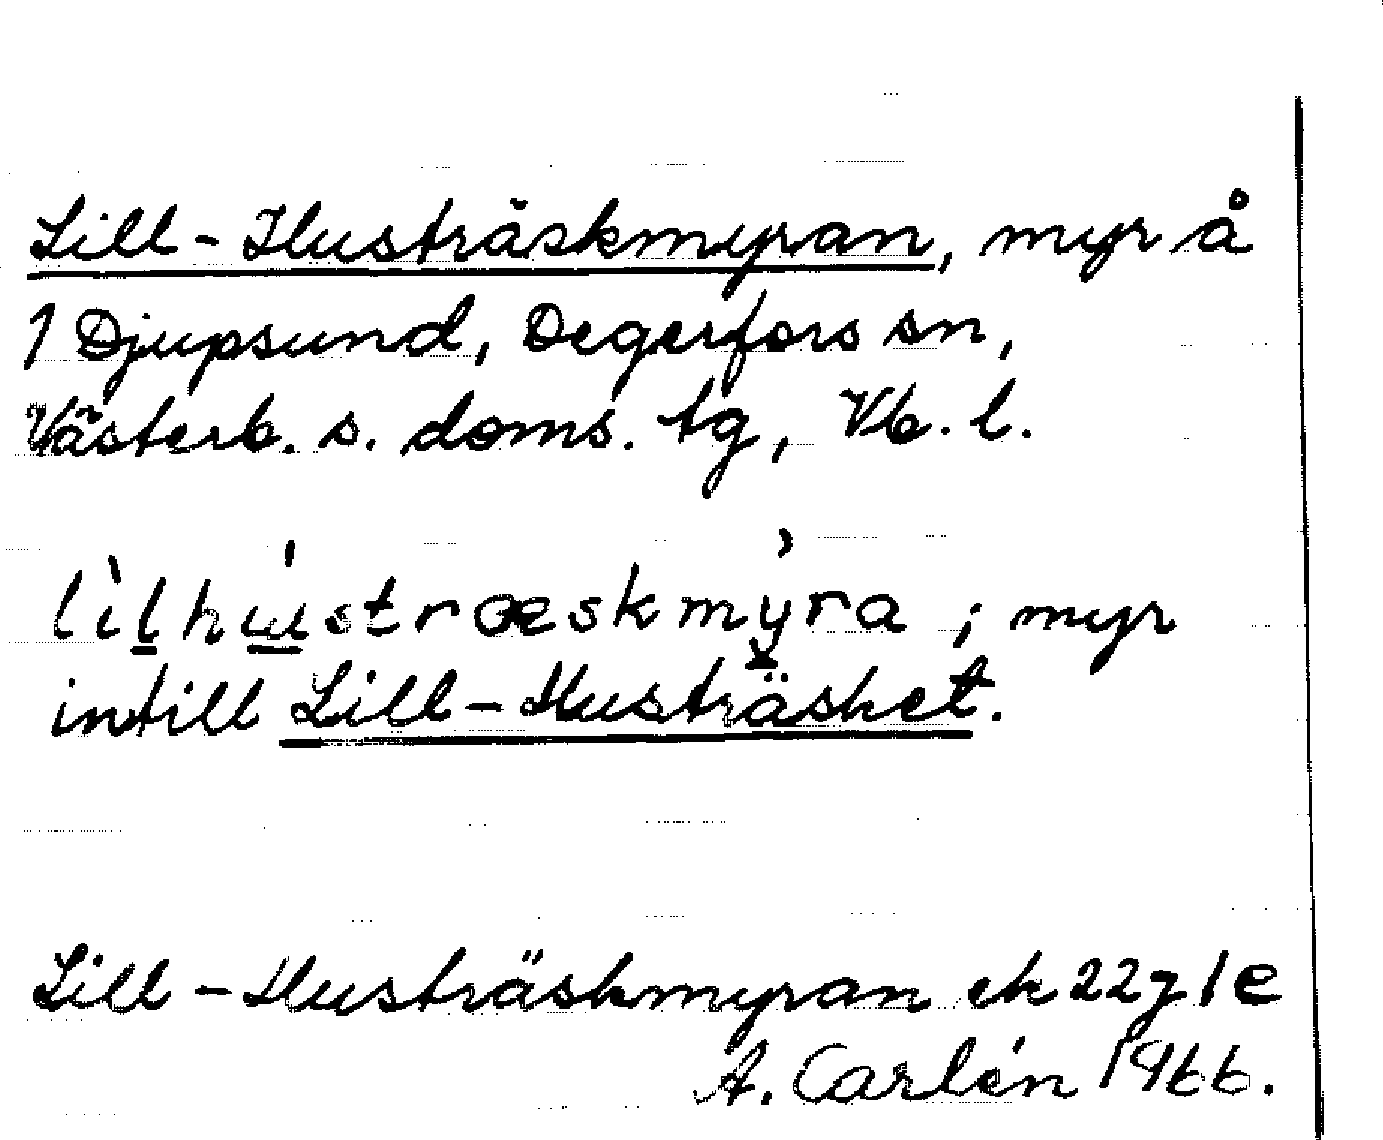 Lill-Husträskmyran, myr å
1 Djupsund, Degerfors sn,
Västerb. s. doms. tg, Vb. l.
lìlhústræskmỳra ; myr
intill Lill-Husträsket.
Lill-Husträskmyran ek 22J1e
A. Carlén 1966.